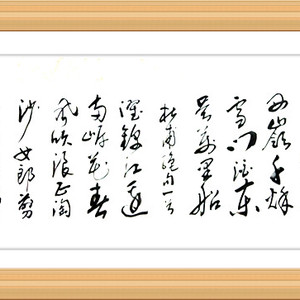 西嶺千秋
雪门泊東
吴萬里船
杜甫绝句一首
濯錦江邊
两岸花春
风吹浪正淘
沙女郎剪